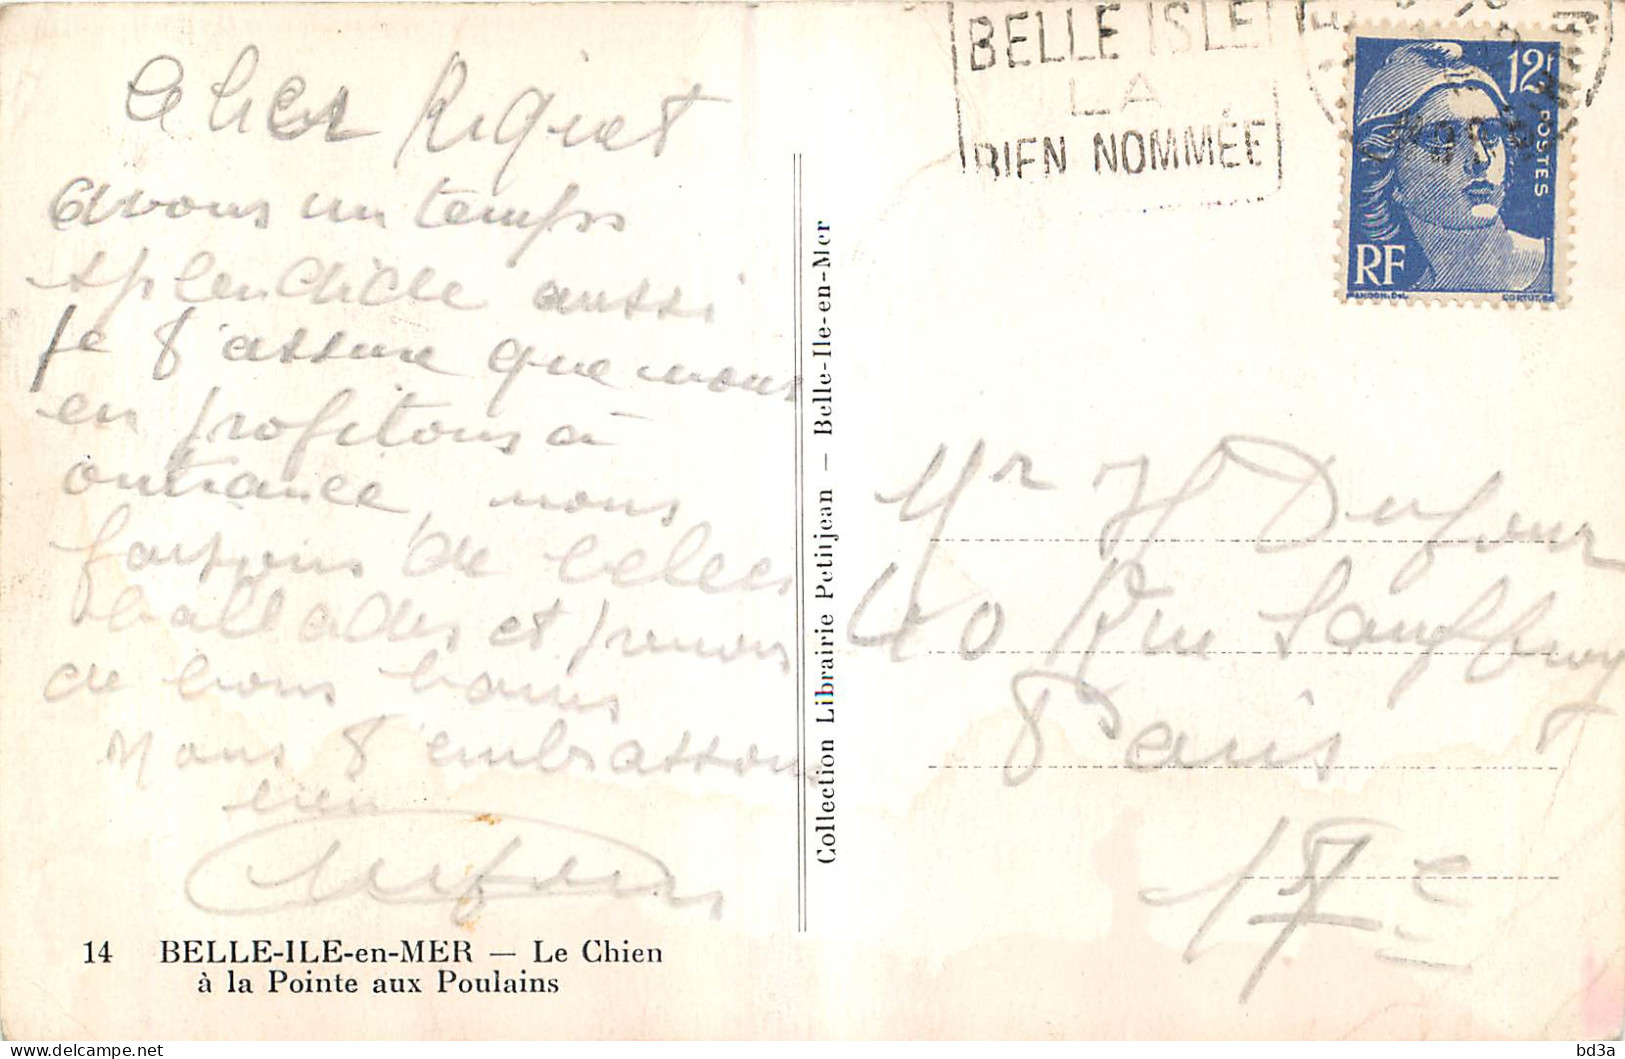 BELLE ISLE
LA
BIEN NOMMÉE
12f
POSTES
RF
avons un temps
splendide aussi
je t'assure que nous
en profitons à
outrance, nous
faisons de belles
ballades et prenons
de bons bains
Nous t'embrassons
bien
Dufour
Mr H Dufour
40 Rue Sauffroy
Paris
17e
Collection Librairie Petitjean — Belle-Ile-en-Mer
14 BELLE-ILE-en-MER — Le Chien
à la Pointe aux Poulains
bd3a